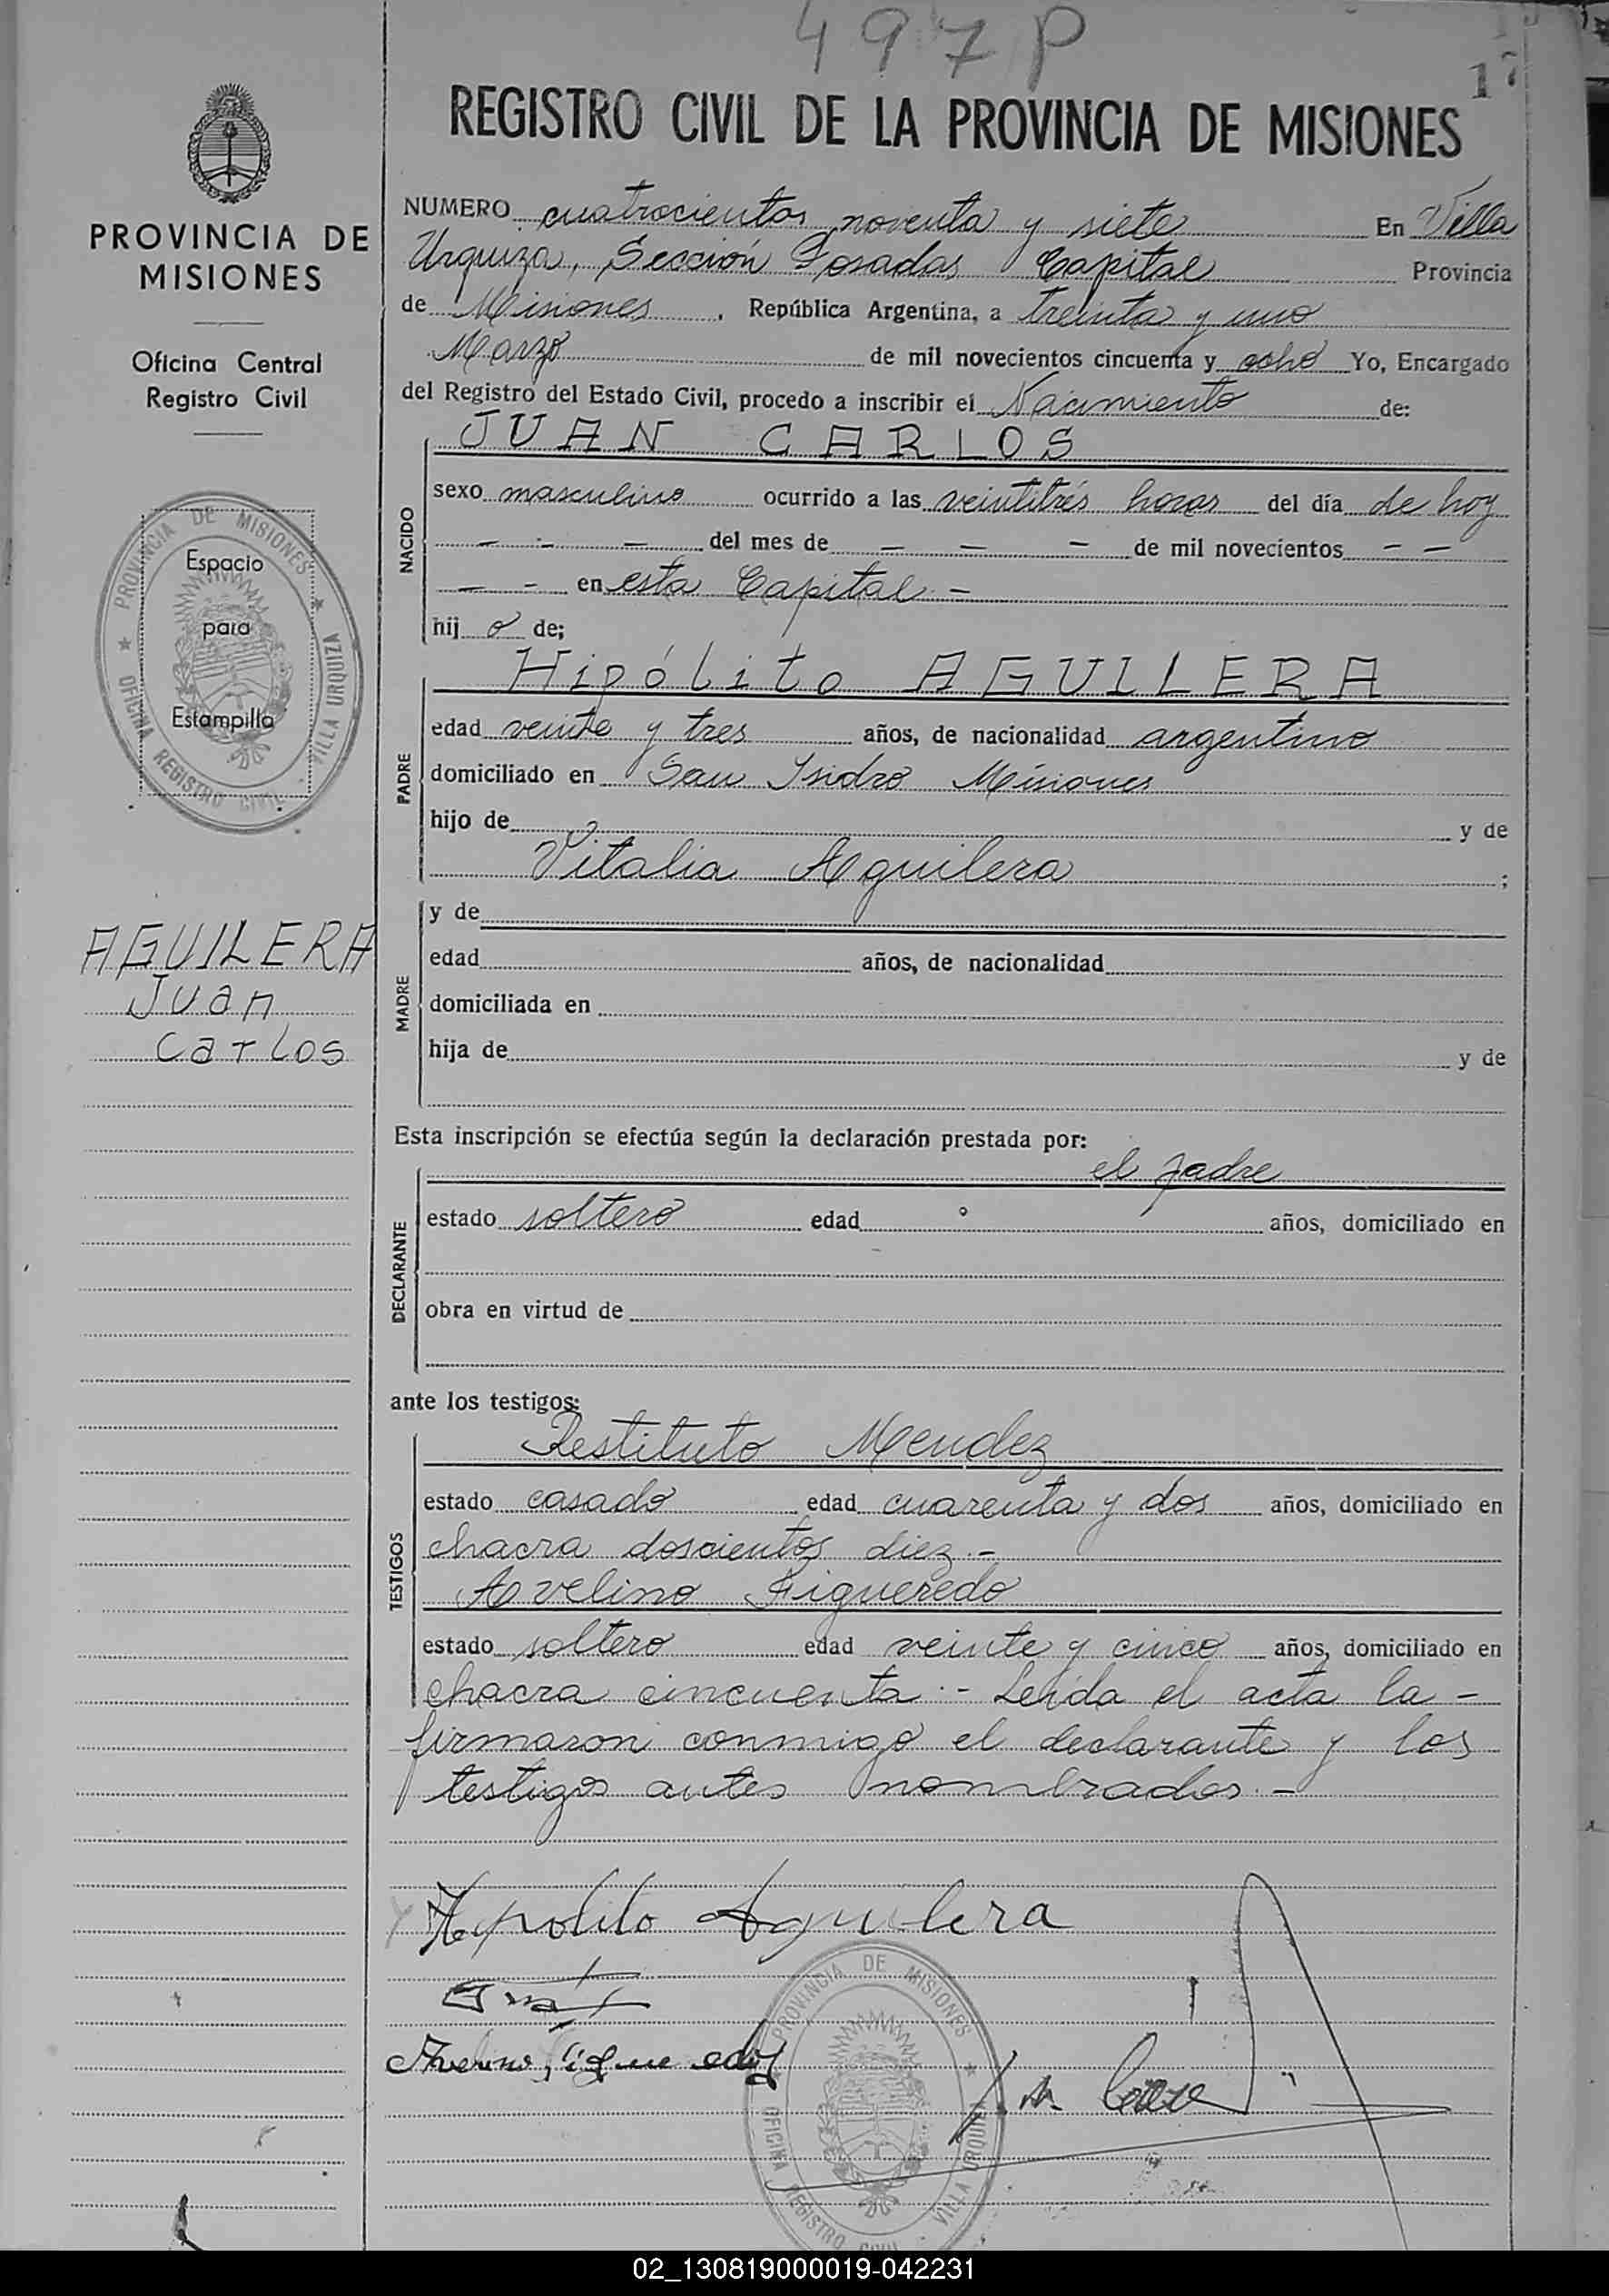 497 P
17
REGISTRO CIVIL DE LA PROVINCIA DE MISIONES
PROVINCIA DE
MISIONES
Oficina Central
Registro Civil
PROVINCIA DE MISIONES
OFICINA REGISTRO CIVIL - VILLA URQUIZA
Espacio
para
Estampilla
AGUILERA
Juan
Carlos
NUMERO cuatrocientos noventa y siete En Villa
Urquiza, Sección Posadas Capital Provincia
de Misiones, República Argentina, a treinta y uno
Marzo de mil novecientos cincuenta y ocho Yo, Encargado
del Registro del Estado Civil, procedo a inscribir el Nacimiento de:
NACIDO
JUAN CARLOS
sexo masculino ocurrido a las veintitrés horas del día de hoy
- - - del mes de - - - de mil novecientos - -
- - en esta Capital -
hij o de;
PADRE
Hipólito AGUILERA
edad veinte y tres años, de nacionalidad argentino
domiciliado en San Isidro Misiones
hijo de y de
Vitalia Aguilera ;
MADRE
y de
edad años, de nacionalidad
domiciliada en
hija de y de
Esta inscripción se efectúa según la declaración prestada por:
DECLARANTE
el padre
estado soltero edad años, domiciliado en
obra en virtud de
ante los testigos:
TESTIGOS
Restituto Mendez
estado casado edad cuarenta y dos años, domiciliado en
chacra doscientos diez.-
Avelino Figueredo
estado soltero edad veinte y cinco años, domiciliado en
chacra cincuenta.- Leída el acta la -
firmaron conmigo el declarante y los
testigos antes nombrados.-
Hipolito Aguilera
Avelino Figueredo
PROVINCIA DE MISIONES
OFICINA REGISTRO CIVIL - VILLA URQUIZA
02_130819000019-042231